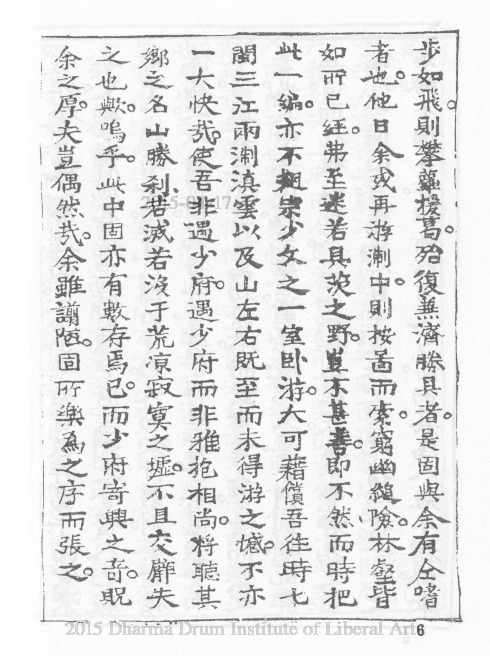 步如飛則攀蘿援葛殆復無濟勝具者是固與余有仝嗜
者也他日余或再游淛中則按啚而索窮幽縋險林壑皆
如所已經弗至迷若具茨之野豈不甚善即不然而時把
此一編亦不翅宗少文之一室卧游大可藉償吾往時七
閩三江兩淛滇雲以及山左右既至而未得游之憾不亦
一大快哉使吾非遇少府遇少府而非雅抱相尚將聽其
鄉之名山勝刹若滅若沒于荒凉寂寞之墟不且交臂失
之也歟嗚乎此中固亦有數存焉已而少府寄興之奇貺
余之厚夫豈偶然哉余雖譾陋固所樂為之序而張之
2015 Dharma Drum Institute of Liberal Arts
6